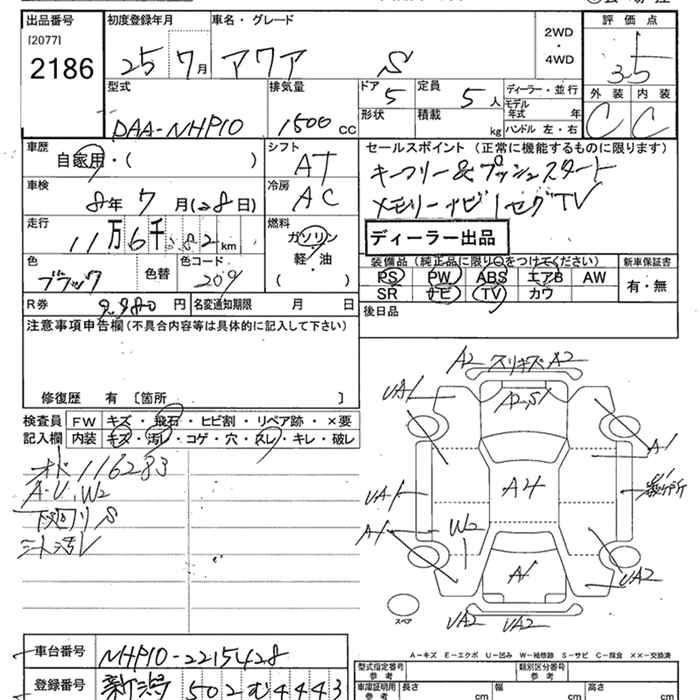 出品番号 初度登録年月 車名・グレード 2WD・4WD 評価点
[2077]
2186 25 7月 アクア S 3.5
型式 排気量 ドア 定員 ディーラー・並行 外装 内装
DAA-NHP10 1500 cc 5 5人 モデル年式 年 C C
形状 積載 kg ハンドル 左・右
車歴 シフト セールスポイント (正常に機能するものに限ります)
自家用・( ) AT キーフリー&プッシュスタート
車検 冷房 メモリーナビ 1セグTV
8年 7月(28日) AC
走行 燃料 ディーラー出品
11万6千 82km ガソリン
軽・油
( )
色 色替 色コード 装備品(純正品に限り○をつけてください) 新車保証書
ブラック 209 PS PW ABS エアB AW 有・無
SR ナビ TV カワ
R券 9,980円 名変通知期限 月 日 後日品
注意事項申告欄(不具合内容等は具体的に記入して下さい)
修復歴 有 〔箇所 〕
検査員記入欄 FW キズ・飛石・ヒビ割・リペア跡・×要
内装 キズ・汚れ・コゲ・穴・スレ・キレ・破レ
116283
A・U、W2
下廻りS
シート汚レ
A2 スリキズ A2
UA1 A2,S1
A1
UA1 A4
A1 W2
A1 UA2
スペア UA2 UA2
A-キズ E-エクボ U-凹み W-補修跡 S-サビ C-腐食 XX-交換済
車台番号 NHP10-2215428
登録番号 新潟 502 む 4443
型式指定番号 参考 類別区分番号 参考
車庫証明用 参考 長さ cm 幅 cm 高さ cm